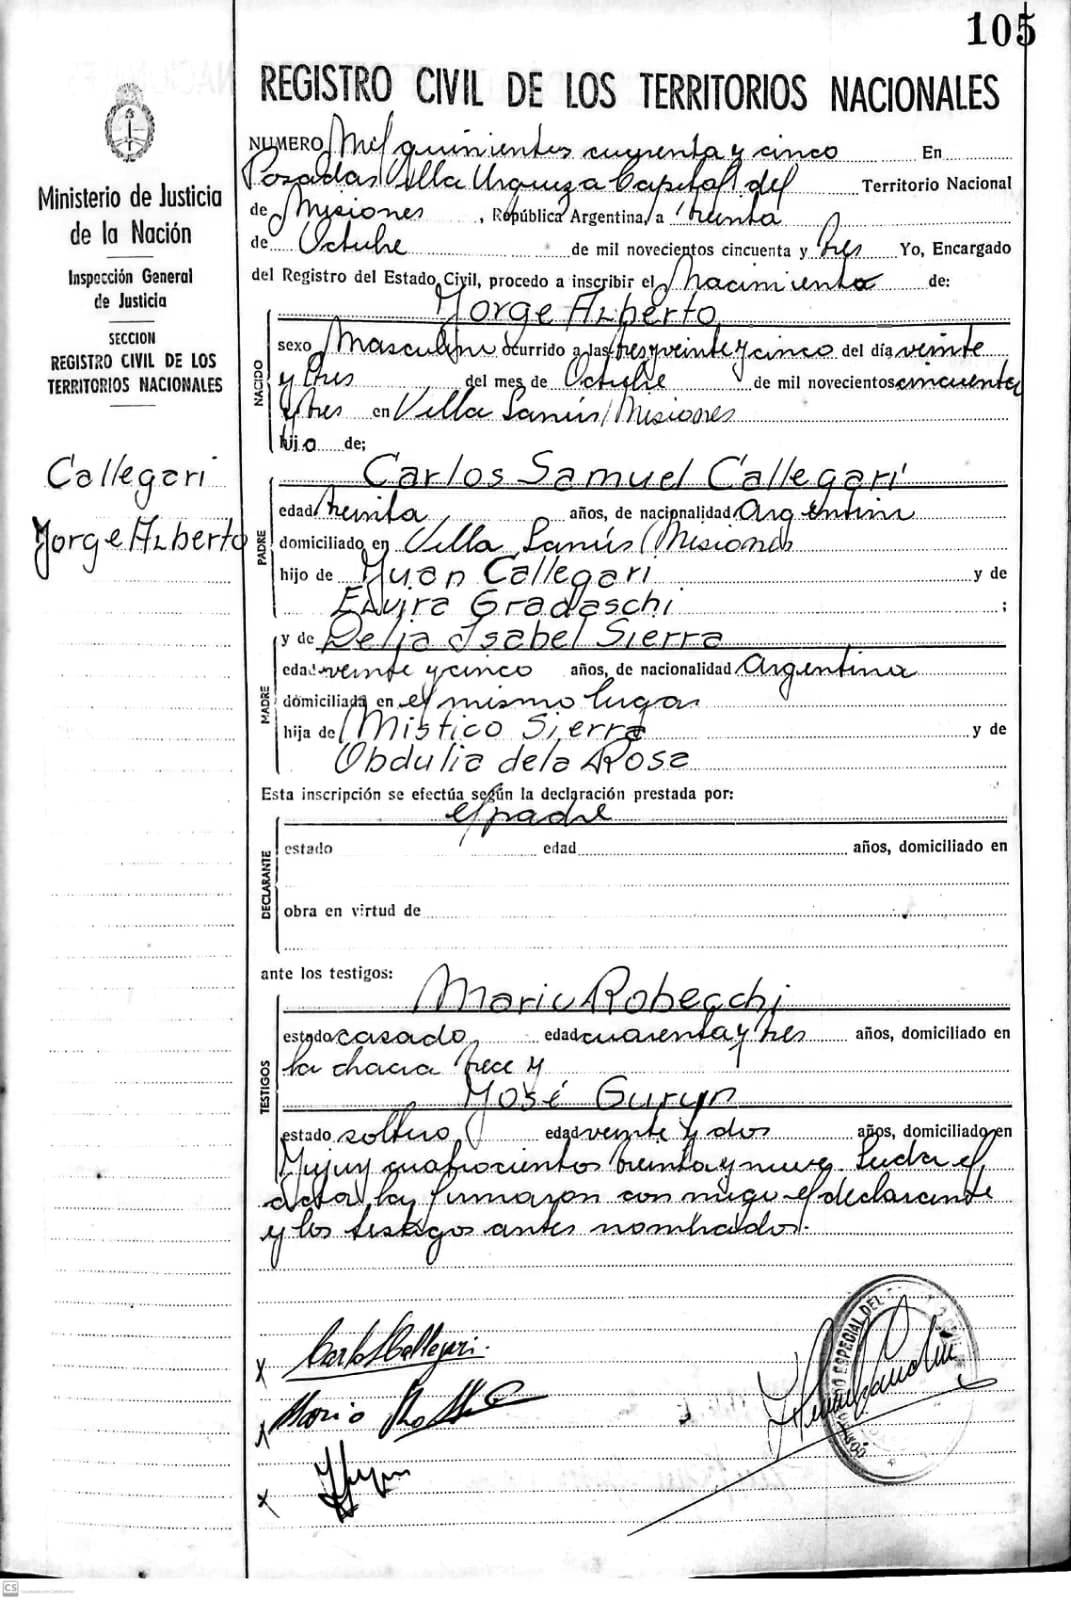 105
REGISTRO CIVIL DE LOS TERRITORIOS NACIONALES
Ministerio de Justicia
de la Nación
Inspección General
de Justicia
SECCION
REGISTRO CIVIL DE LOS
TERRITORIOS NACIONALES
Callegari
Jorge Alberto
NUMERO Mil quinientos cuarenta y cinco En
Posadas Villa Urquiza Capital del Territorio Nacional
de Misiones, República Argentina, a treinta
de Octubre de mil novecientos cincuenta y tres Yo, Encargado
del Registro del Estado Civil, procedo a inscribir el Nacimiento de:
NACIDO
Jorge Alberto
sexo Masculino ocurrido a las tres y veinte y cinco del día veinte
y tres del mes de Octubre de mil novecientos cincuenta
y tres en Villa Lanús Misiones
hijo de;
PADRE
Carlos Samuel Callegari
edad treinta años, de nacionalidad Argentino
domiciliado en Villa Lanús Misiones
hijo de Juan Callegari y de
Elvira Gradaschi ;
MADRE
y de Delia Isabel Sierra
edad veinte y cinco años, de nacionalidad Argentina
domiciliada en el mismo lugar
hija de Mistico Sierra y de
Obdulia de la Rosa
Esta inscripción se efectúa según la declaración prestada por:
DECLARANTE
el padre
estado edad años, domiciliado en
obra en virtud de
ante los testigos:
TESTIGOS
Mario Robecchi
estado casado edad cuarenta y tres años, domiciliado en
la chacra trece y
José Guryn
estado soltero edad veinte y dos años, domiciliado en
Jujuy cuatrocientos treinta y nueve Leida el
acta la firmaron con migo el declarante
y los testigos antes nombrados.
x Carlos Callegari.
x Mario
x
ESPECIAL DEL
CS